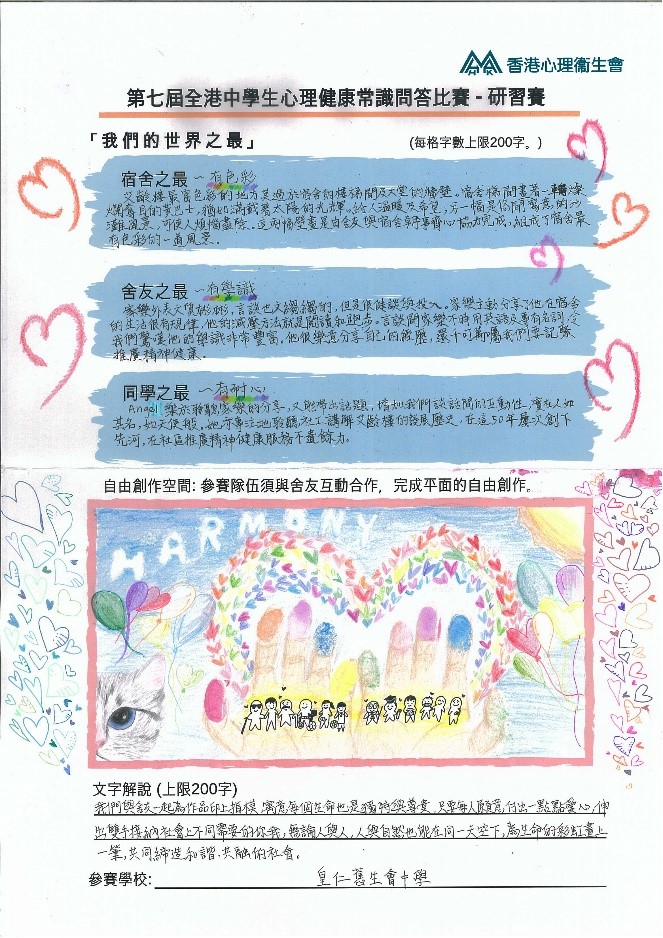 香港心理衞生會
第七屆全港中學生心理健康常識問答比賽 - 研習賽
「我們的世界之最」 (每格字數上限200字。)
宿舍之最 ~ 有色彩
艾齡樓最富色彩的地方是通於宿舍的樓梯間及天堂的牆壁。宿舍梯間畫著一輛燦
爛奪目的黃巴士，猶如滿載著太陽的光輝，給人溫暖及希望，另一幅是
灘風景，可使人煩惱盡除。這兩幅壁畫是由舍友與宿舍同事齊心協力完成，組成了宿舍最
有色彩的一道風景。
舍友之最 ~ 有學識
家樂外表大質彬彬，言談也文縐縐的，但是很健談及投入。家樂主動分享了他在宿舍
的生活很有規律，他的減壓方法就是閱讀和跑步。言談間家樂不時用英語及專有名詞，令
我們驚嘆他的學識非常豐富，他很樂意分享自己的
推廣精神健康。
同學之最 ~ 有耐心
Angel 樂於聆聽家樂的分享，又能帶出話題，增加我們談話間的互動性，實在人如
其名，如天使般，她亦專注地聆聽社工講解艾齡樓的發展歷史，在這50年屢次創下
先河，在社區推廣精神健康服務不遺餘力。
自由創作空間: 參賽隊伍須與舍友互動合作，完成平面的自由創作。
HARMONY
文字解說 (上限200字)
我們與舍友一起為作品印上指模，寓意每個生命也是獨特與尊貴，只要每人願意付出一點點愛心，伸
出雙手接納社會上不同需要的你我，無論人與人，人與自然也能在同一天空下，為生命的彩虹畫上
一筆，共同締造和諧、共融的社會。
參賽學校: 皇仁舊生會中學